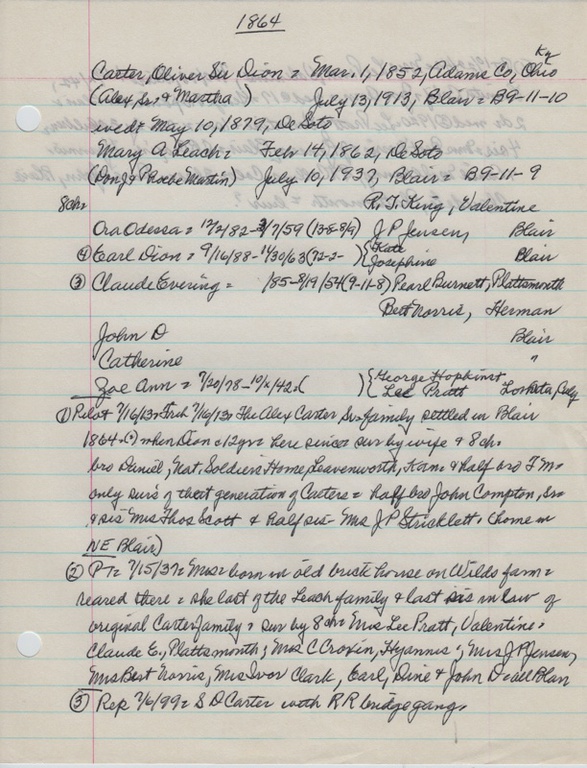 1864
Ky
Carter, Oliver Sir Dion = Mar. 1, 1852, Adams Co, Ohio
(Alex, Sr. & Martha ) July 13, 1913, Blair = B9-11-10
wed: May 10, 1879, De Soto
Mary A. Leach = Feb 14, 1862, De Soto
(Don J & Martin) July 10, 1937, Blair = B9-11-9
8ch: R. T. King, Valentine
Ora Odessa = 82- /7/59 J P Jensen, Blair
④ Earl Dion = 9/16/88- 11/30/63 (72-2- ) { Kate Josephine Blair
③ Claude Evering = /85-8/19/54 (9-11-8) Pearl Burnett, Plattsmouth
Bert Norris, Herman
John D Blair
Catherine "
Zoe Ann = 7/20/78- /42 ( ) { George Hopkins
Lee Pratt
① Pilot 7/16/13 = 7/16/13 = The Alex Carter, Sr. family settled in Blair
1864 (?) when Dion = 12 yrs = here since = sur by wife & 8 ch =
bro Daniel, Nat. Soldiers Home, Leavenworth, Kans & half bro T M =
only surs of that generation of Carters = half bro John Compton, Sr
& sis Mrs Thos Scott & half sis - Mrs J P Stricklett (home in
NE Blair)
② PT = 7/15/37 = Mrs = born in old brick house on Wilds farm =
reared there = she last of the Leach family & last sis in law of
original Carter family = sur by 8 ch = Mrs Lee Pratt, Valentine =
Claude E., Plattsmouth; Mrs C Cronin, Hyannis; Mrs J P Jensen,
Mrs Bert Norris, Mrs Ivor Clark, Earl, Dine & John D = all Blair
③ Rep 7/6/99 = S D Carter with RR bridge gang